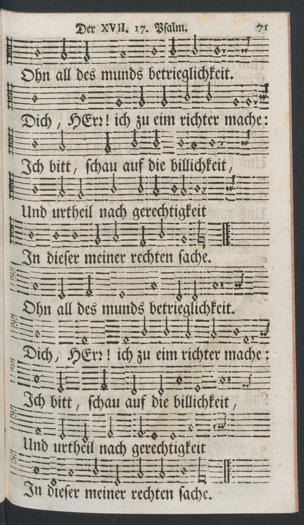 Der XVII. 17. Psalm. 71
Ohn all des munds betrieglichkeit.
Dich, HErr! ich zu eim richter mache:
Ich bitt, schau auf die billichkeit,
Und urtheil nach gerechtigkeit
In dieser meiner rechten sache.
Ohn all des munds betrieglichkeit.
Dich, HErr! ich zu eim richter mache:
Ich bitt, schau auf die billichkeit,
Und urtheil nach gerechtigkeit
In dieser meiner rechten sache.